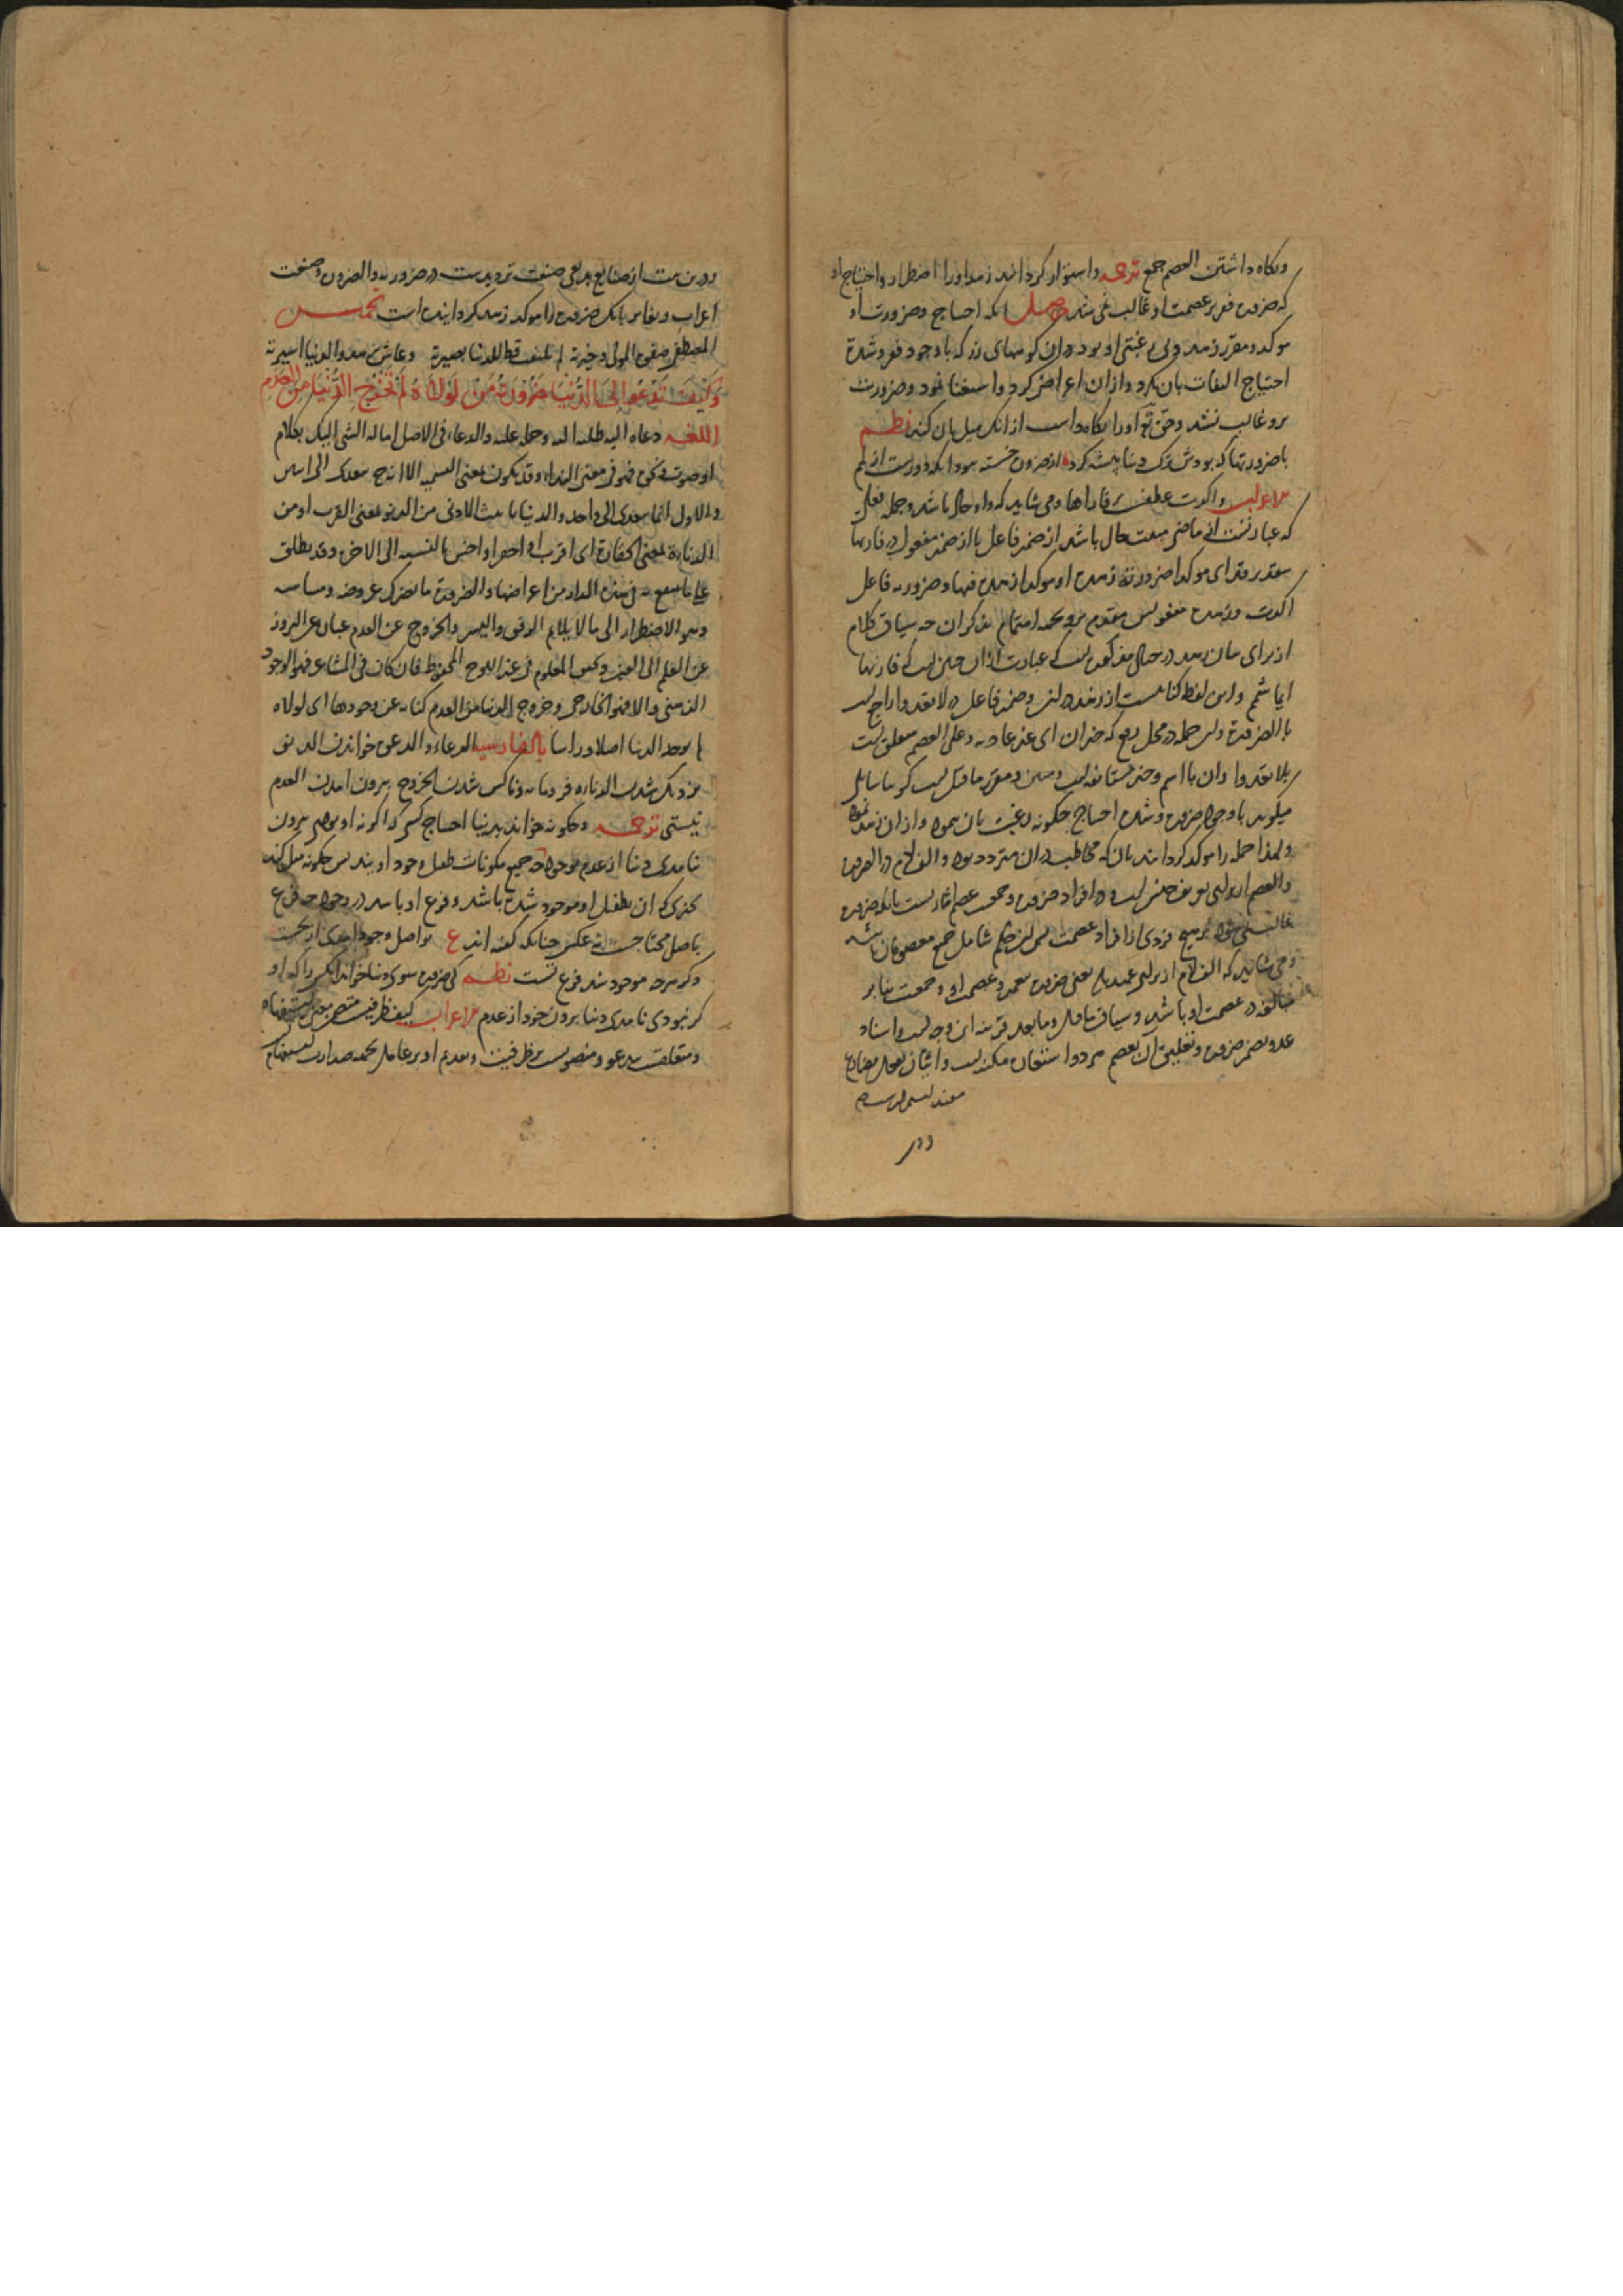 ونکاه داشتن العصم جمع ترجمه واستوار کردانید زهد اورا اضطرار واحتیاج او
که ضرورت بر عصمت او غالب نمی شد حاصل آنکه احتیاج وضرورت او
موکد ومقرر زهد وبی رغبتی او بود دران کوههای زر که باوجود فقر وشدة
احتیاج التفات بان نکرد وازان اعراض کرد واستغنا نمود وضرورت
برو غالب نشد وحق تعالی اورا نکاه داشت از انک میل بان کند نظم
با ضرورتها که بودش ترک دنیا پیشه کرد از ضرورت خسته
الاعراب واکدت عطف بر فاراها ومی شاید که واو حال باشد وجمله فعلی
که عبارتست از ماضی مثبت حال باشد از ضمیر فاعل یا از ضمیر مفعول در فاریها
بتقدیر وقد ای موکدا ضرورته زهده او موکدا زهده فیها وضرورته فاعل
اکدت وزهده مفعولش مقدم برو بجهة اهتمام بذکر آن چه سیاق کلام
از برای بیان زهد در حال مذکور است که عبارت ازان حین است که فاریها
ایما شمم واین لفظ کنایتست از زهد وضمیر فاعل در لا تعدوا راجع است
با الضرورة واین جمله در محل رفع که خبر ان ای غیر عادیة وعلی العصم متعلق است
بلا تعدوا وان با اسم وخبر مستانفه است ومبین ومقرر ما قبل است کویا سایل
میکوید باوجود ضرورت وشدت احتیاج چکونه رغبت بان ننمود وازان زهد نمود
ولهذا جمله را موکد کردانید بان که مخاطب دران متردد بود والف لام در الضرورة
والعصم از برای تعریف جنس است در افراد ضرورت وجمعیت عصم اشارتست بانکه ضرورت
غالب نمی شود بر هیچ فردی از افراد عصمت پس این حکم شامل جمیع معصومان باشد
ومی شاید که الف لام از برای عهد باشد یعنی ضرورت محمد وعصمت او وجمعیت بنا بر
مبالغه در عصمت او باشد وسیاق ما قبل وما بعد قرینه این وجه است واسناد
عدو بضمیر ضرورت وتعلیق آن بعصم هر دو استعاره مکنیه است واتیان بفعل مضارع
مفید استمرارست
ودر
ودرین بیت از صنایع بدیعی صنعت تردیدست در ضرورته والضرورة وصنعت
اغراب وتغایر بانک ضرورت را موکد زهد کردانیده است تخمیس
المصطفی صفی المولی وخیرته لم یلتفت قط للدنیا بصیرته وعاش فی زهد والدنیا اسیرته
وَکَیْفَ تَدْعُو اِلَی الدُّنْیَا ضَرُورَةُ مَنْ لَوْلَاهُ لَمْ تُخْرَجِ الدُّنْیَا مِنَ الْعَدَمِ
اللغة دعاه الیه طلبه الیه وحمله علیه والدعاء فی الاصل امالة الشی الیک بکلام
او صوت ونحوه فهو فی معنی النداء وقد یکون بمعنی التسمیة الا انه ح یتعدی الی اثنین
والاول انما یتعدی الی واحد والدنیا تانیث الادنی من الدنو بمعنی القرب او من
الدناءة بمعنی الحقارة ای اقرب او احقر او اخس بالنسبة الی الاخری وقد یطلق
علی ما یتمتع به فی هذه الدار من اعراضها والضرورة ما یضرک عروضه ومساسه
وهو الاضطرار الی ما لا یلایم الرفق والیسر والخروج عن العدم عبارة عن البروز
عن العلم الی العین وکتب المعلوم فی عند اللوح المحفوظ فان کان فی المشاعر فهو الوجود
الذهنی والا فهو الخارجی وخروج الدنیا من العدم کنایة عن وجودها ای لولاه
لم یوجد الدنیا اصلا وراسا بالفارسیة الدعاء والدعوة خواندن الدنو
نزدیک شدن الدناءة فرومایه وناکس شدن الخروج بیرون آمدن العدم
نیستی ترجمه وچکونه خواند بدنیا احتیاج کسی که اکر نه او بودی بیرون
نیامدی دنیا از عدم بوجود چه جمیع مکونات طفیل وجود اویند پس چکونه میل کند
بچیزی که آن بطفیل او موجود شده باشد وفرع او باشد در وجود چه فرع
باصل محتاجست نه عکس چنانکه کفته اند ع تو اصل وجود آمدی از نخست
دکر هر چه موجود شد فرع تست نظم کی ضرورت سوی دنیا خواند آنکس را که او
کر نبودی نامدی دنیا برون خود از عدم الاعراب کیف ظرفیست متضمن معنی استفهام
ومتعلقست بتدعو ومنصوبست بر ظرفیت وتقدیم او بر عامل بجهة صدارت استفهام